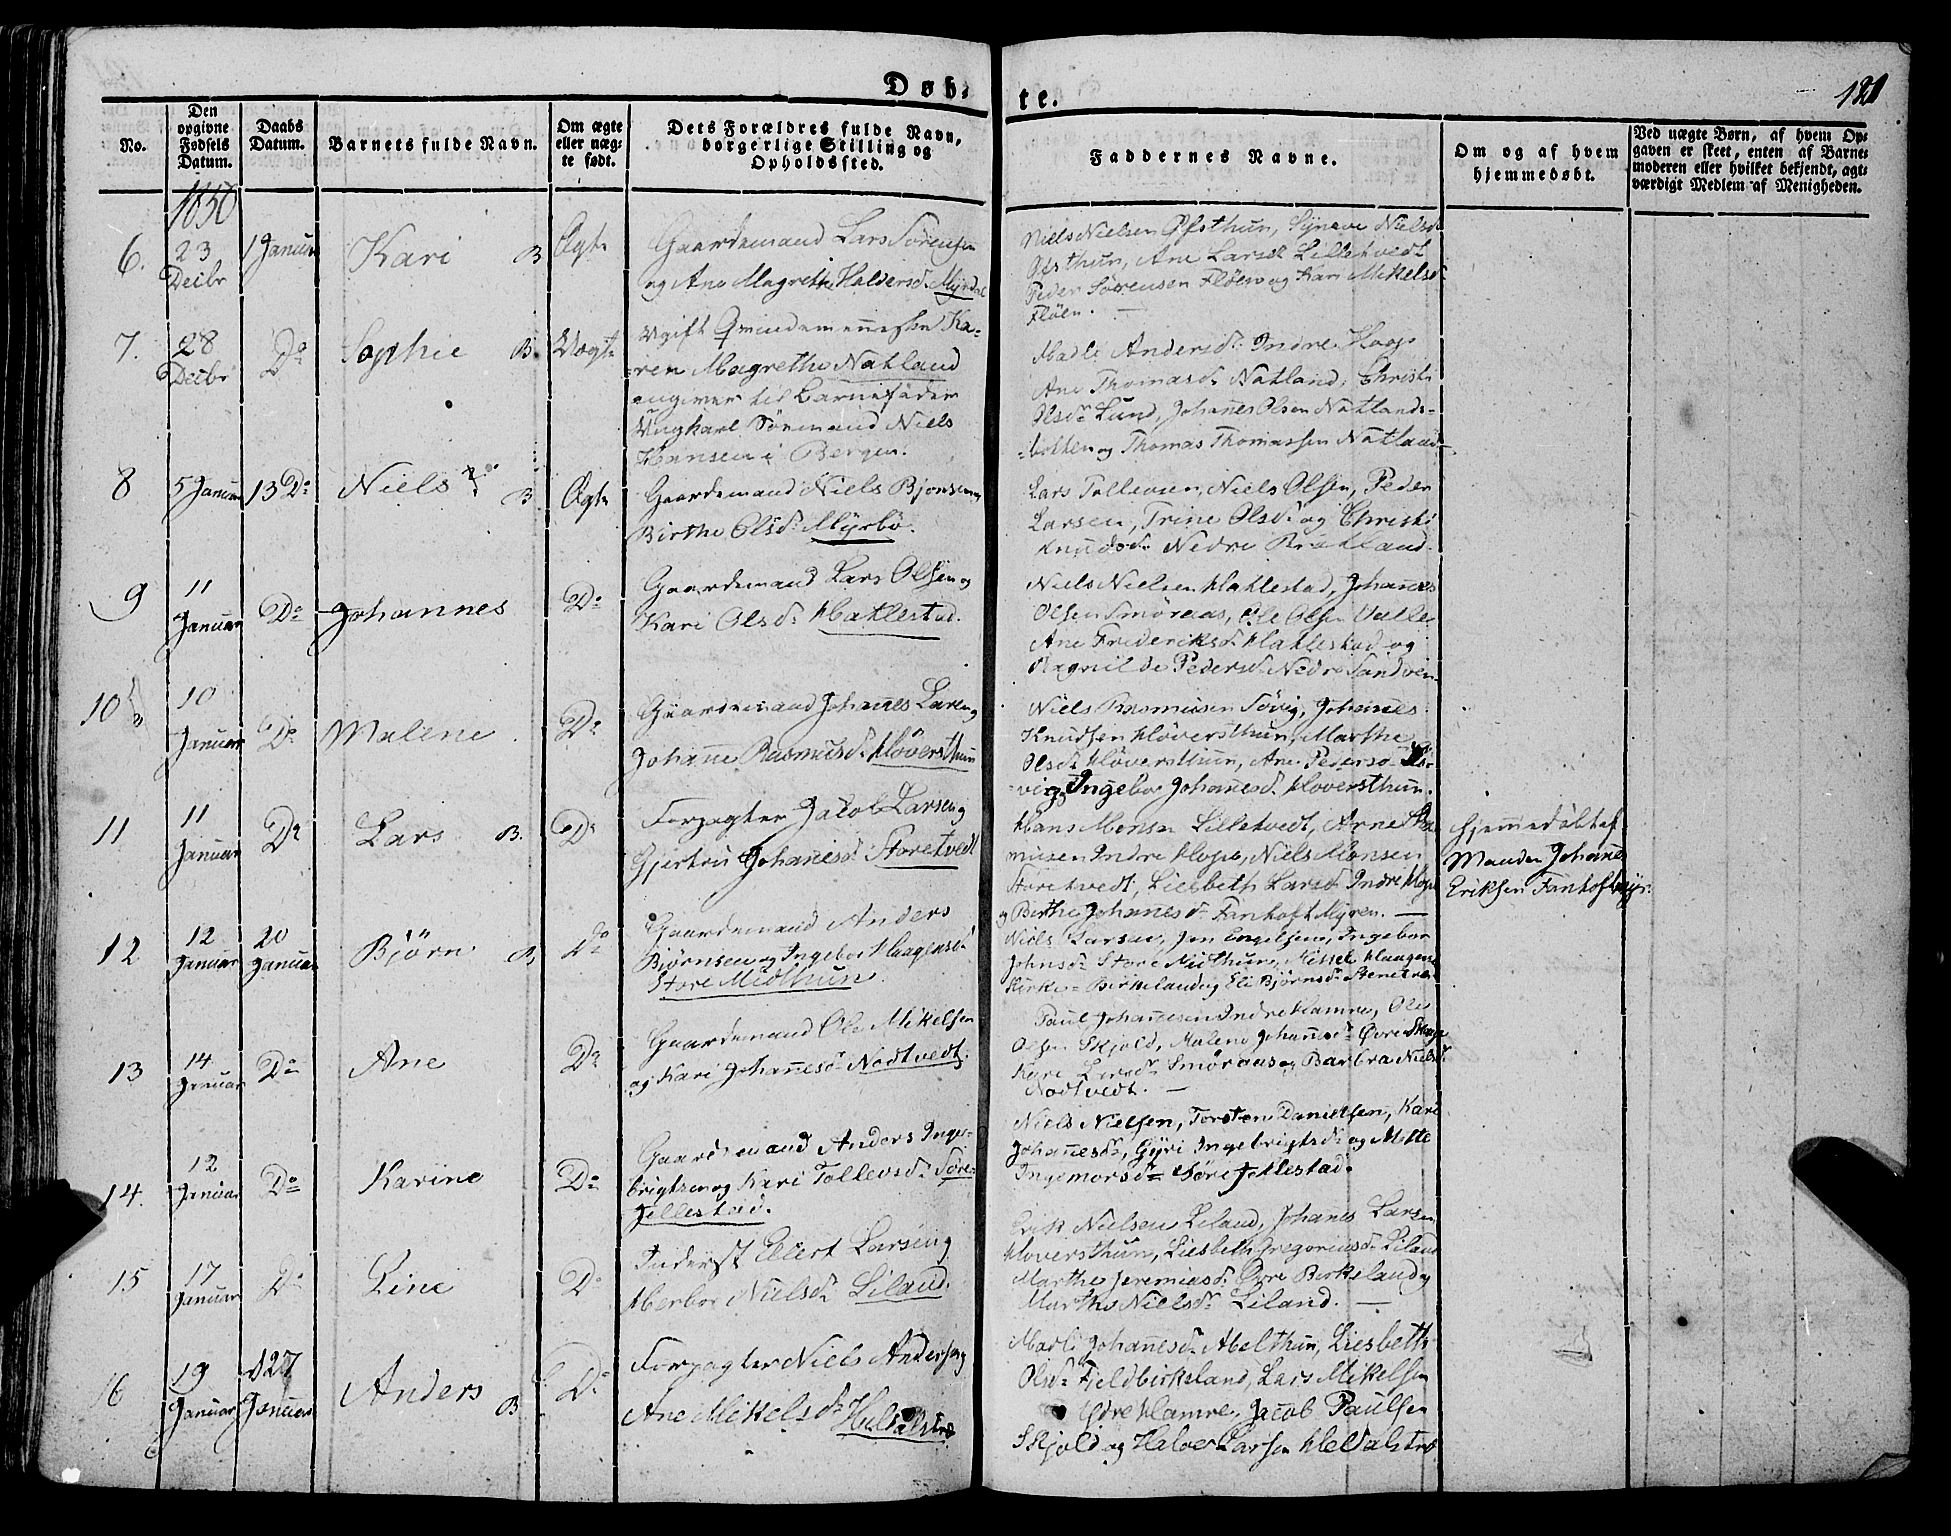 Døb-
te.
121
No.
Den
opgivne
Fødsels
Datum.
Daabs
Datum.
Barnets fulde Navn.
Om ægte
eller uæg-
te født.
Dets Forældres fulde Navn,
borgerlige Stilling og
Opholdssted.
Faddernes Navne.
Om og af hvem
hjemmedøbt.
Ved uægte Børn, af hvem Op-
gaven er skeet, enten af Barne-
moderen eller hvilket bekjendt, agt-
værdigt Medlem af Menigheden.
1850
6.
23
Decbr
1 Januar
Kari
B
Ægte
Gaardemand Lars Sörensen
og Ane Magrethe Haldersd. Myrdal
Niels Nielsen Øfsthun, Synneve Nielsd.
Øfsthun, Ane Larsd. Lilletvedt
Peder Sörensen Flöen og Kari Mikelsd.
Flöen.
7.
28
Decbr
Do
Sophie
B.
Uægte
Ugift Qvindemenneske Ka-
ren Magrethe Natland
angiver til Barnefader
Ungkarl Sömand Niels
Hansen i Bergen.
Madli Andersd. Indre Hoop
Ane Thomasd. Natland, Christi
Olsd. Lund, Johannes Olsen Natlands-
bakken og Thomas Thomassen Natland
8
5 Januar
13 Do
Niels
B
Ægte
Gaardemand Niels Bjonsen og
Birthe Olsd. Myrbö.
Lars Tollevsen, Niels Olsen, Peder
Larsen, Trine Olsd. og Christi
Knudsd. Nedre Birkland.
9
11
Januar
Do
Johannes
Do
Gaardemand Lars Olsen og
Kari Olsd. Hatlestad.
Niels Nielsen Hatlestad, Johannes
Olsen Smöraas, Ole Olsen Valle
Ane Frederiksd. Hatlestad og
Ragnilde Pedersd. Nedre Sandven
10
10
Januar
Do
Malene
Do
Gaardemand Johannes Larsen og
Johanne Rasmusd. Klöversthun
Niels Rasmusen Sövig, Johannes
Knudsen Klöversthun, Marthe
Olsd. Klöversthun, Ane Pedersd. Sö-
vig, Ingebor Johannesd. Kloversthun.
11
11
Januar
Do
Lars
B.
Do
Forpagter Jacob Larsen og
Gjertrui Johannesd. Storetvedt
Hans Monsen Lilletvedt, Arne Ras-
musen Indre Hope, Niels Monsen
Storetvedt, Liesbeth Larsd. Indre Hope
og Birthe Johannesd. Fanhoft Myren.
hjemmedöbt af
Manden Johannes
Eriksen Fanhoftmyr.
12
12
Januar
20
Januar
Björn
B,
Do
Gaardemand Anders
Björnsen og Ingebor Haagensd.
Store Midthun.
Niels Larsen, Jon Engelsen, Ingebor
Johnsd. Store Midthun, Mikkel Haagensen
Kirke-Birkeland og Eli Björnsd. Steneraa
13
14
Januar
Do
Ane
Do
Gaardemand Ole Mikelsen
og Kari Johannesd. Nodtvedt.
Paul Johannesen Indre Hamre, Ole
Olsen Skjold, Malene Johannesd. Övre
Kari Larsd. Smöraas og Barbra Nielsd.
Nodtvedt.
14.
12
Januar
Do
Karine
Do
Gaardemand Anders Inge-
brigtsen og Kari Tollevsd. Söre
Jellestad.
Niels Nielsen, Torsten Danielsen, Kari
Johannesd., Gyri Ingebrigtsd. og Mette
Ingemorsd. Söre Jellestad.
15
17
Januar
Do
Line
Do
Inderst Elert Larsen og
Herbor Nielsd. Liland.
Erik Nielsen Liland, Johannes Larsen
Kloversthun, Liesbeth Gregoriusd. Liland
Marthe Jeremiasd. Övre Birkeland og
Marthe Nielsd. Liland.
16
19
Januar
27
Januar
Anders
B
Do
Forpagter Niels Andersen og
Ane Mikelsd. Heldalstræ
Marli Johannesd. Abelthun, Liesbeth
Olsd. Fjeldbirkeland, Lars Mikelsen
Ydre Hamre, Jacob Paulsen
Skjold og Halvor Larsen Heldalstræ